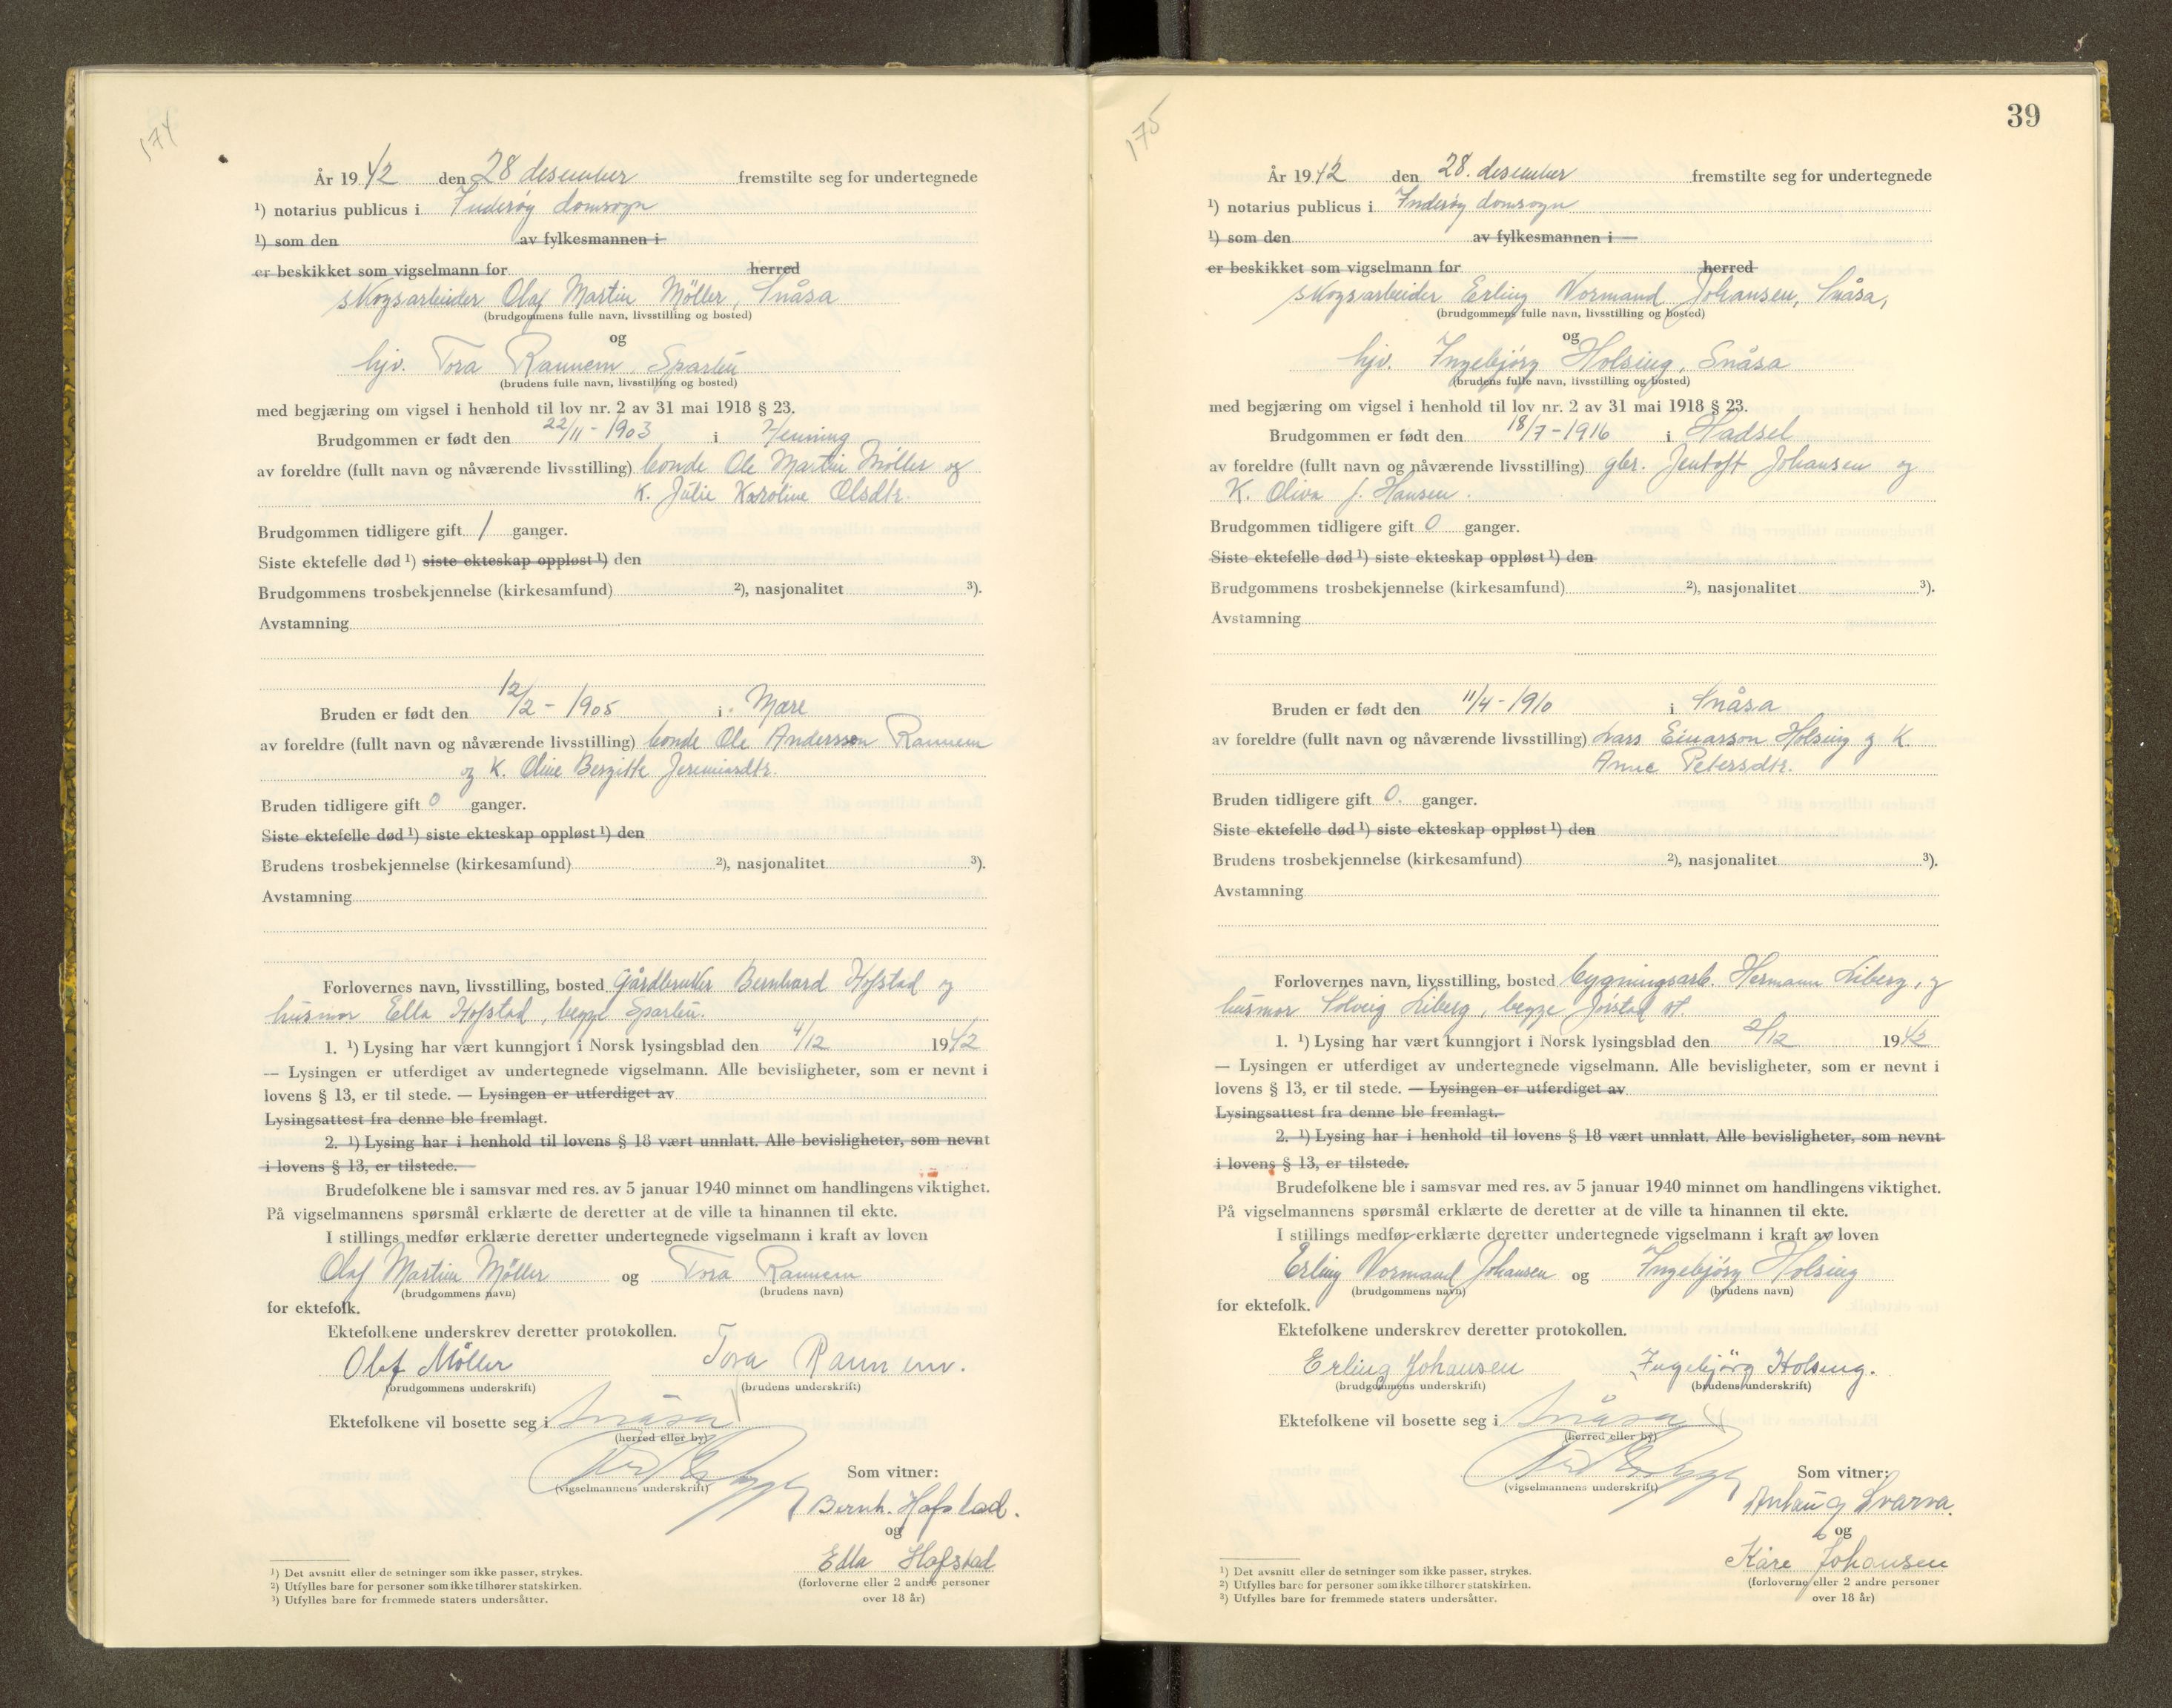 174
År 1942 den 28 desember fremstilte seg for undertegnede
¹) notarius publicus i Inderøy domsogn
¹) som den av fylkesmannen i
er beskikket som vigselmann for herred
skogsarbeider Olaf Martin Möller, Snåsa
(brudgommens fulle navn, livsstilling og bosted)
og
hjv. Tora Rannem, Sparbu
(brudens fulle navn, livsstilling og bosted)
med begjæring om vigsel i henhold til lov nr. 2 av 31 mai 1918 § 23.
Brudgommen er født den 22/11 - 1903 i Henning
av foreldre (fullt navn og nåværende livsstilling) bonde Ole Martin Möller og
K. Julie Karoline Olsdtr.
Brudgommen tidligere gift 1 ganger.
Siste ektefelle død ¹) siste ekteskap oppløst ¹) den
Brudgommens trosbekjennelse (kirkesamfund) ²), nasjonalitet ³).
Avstamning
Bruden er født den 12/2 - 1905 i Mære
av foreldre (fullt navn og nåværende livsstilling) bonde Ole Anderssen Rannem
og K. Oline Bergitte Jeremiasdtr.
Bruden tidligere gift 0 ganger.
Siste ektefelle død ¹) siste ekteskap oppløst ¹) den
Brudens trosbekjennelse (kirkesamfund) ²), nasjonalitet ³).
Avstamning
Forlovernes navn, livsstilling, bosted Gårdbruker Bernhard Hofstad og
husmor Ella Hofstad, begge Sparbu.
1. ¹) Lysing har vært kunngjort i Norsk lysingsblad den 4/12 1942
— Lysingen er utferdiget av undertegnede vigselmann. Alle bevisligheter, som er nevnt i
lovens § 13, er til stede. — Lysingen er utferdiget av
Lysingsattest fra denne ble fremlagt.
2. ¹) Lysing har i henhold til lovens § 18 vært unnlatt. Alle bevisligheter, som nevnt
i lovens § 13, er tilstede.
Brudefolkene ble i samsvar med res. av 5 januar 1940 minnet om handlingens viktighet.
På vigselmannens spørsmål erklærte de deretter at de ville ta hinannen til ekte.
I stillings medfør erklærte deretter undertegnede vigselmann i kraft av loven
Olaf Martin Möller og Tora Rannem
(brudgommens navn) (brudens navn)
for ektefolk.
Ektefolkene underskrev deretter protokollen.
Olaf Möller Tora Rannem.
(brudgommens underskrift) (brudens underskrift)
Ektefolkene vil bosette seg i Snåsa
(herred eller by)
(vigselmannens underskrift)
Som vitner:
Bernh. Hofstad.
og
Ella Hofstad
(forloverne eller 2 andre personer
over 18 år)
¹) Det avsnitt eller de setninger som ikke passer, strykes.
²) Utfylles bare for personer som ikke tilhører statskirken.
³) Utfylles bare for fremmede staters undersåtter.
175
39
År 1942 den 28. desember fremstilte seg for undertegnede
¹) notarius publicus i Inderøy domsogn
¹) som den av fylkesmannen i
er beskikket som vigselmann for herred
skogsarbeider Erling Normand Johansen, Snåsa,
(brudgommens fulle navn, livsstilling og bosted)
og
hjv. Ingebjörg Holsing, Snåsa
(brudens fulle navn, livsstilling og bosted)
med begjæring om vigsel i henhold til lov nr. 2 av 31 mai 1918 § 23.
Brudgommen er født den 18/7 - 1916 i Hadsel
av foreldre (fullt navn og nåværende livsstilling) gbr. Jentoft Johansen og
K. Oliva f. Hansen.
Brudgommen tidligere gift 0 ganger.
Siste ektefelle død ¹) siste ekteskap oppløst ¹) den
Brudgommens trosbekjennelse (kirkesamfund) ²), nasjonalitet ³).
Avstamning
Bruden er født den 11/4 - 1910 i Snåsa
av foreldre (fullt navn og nåværende livsstilling) Lars Einarson Holsing og K.
Anne Petersdtr.
Bruden tidligere gift 0. ganger.
Siste ektefelle død ¹) siste ekteskap oppløst ¹) den
Brudens trosbekjennelse (kirkesamfund) ²), nasjonalitet ³).
Avstamning
Forlovernes navn, livsstilling, bosted bygningsarb. Hermann Liberg, og
husmor Solveig Liberg, begge Jörstad st.
1. ¹) Lysing har vært kunngjort i Norsk lysingsblad den 2/12 1942
— Lysingen er utferdiget av undertegnede vigselmann. Alle bevisligheter, som er nevnt i
lovens § 13, er til stede. — Lysingen er utferdiget av
Lysingsattest fra denne ble fremlagt.
2. ¹) Lysing har i henhold til lovens § 18 vært unnlatt. Alle bevisligheter, som nevnt
i lovens § 13, er tilstede.
Brudefolkene ble i samsvar med res. av 5 januar 1940 minnet om handlingens viktighet.
På vigselmannens spørsmål erklærte de deretter at de ville ta hinannen til ekte.
I stillings medfør erklærte deretter undertegnede vigselmann i kraft av loven
Erling Normand Johansen og Ingebjörg Holsing
(brudgommens navn) (brudens navn)
for ektefolk.
Ektefolkene underskrev deretter protokollen.
Erling Johansen Ingebjörg Holsing.
(brudgommens underskrift) (brudens underskrift)
Ektefolkene vil bosette seg i Snåsa
(herred eller by)
(vigselmannens underskrift)
Som vitner:
Anlaug Svarva.
og
Kåre Johansen
(forloverne eller 2 andre personer
over 18 år)
¹) Det avsnitt eller de setninger som ikke passer, strykes.
²) Utfylles bare for personer som ikke tilhører statskirken.
³) Utfylles bare for fremmede staters undersåtter.